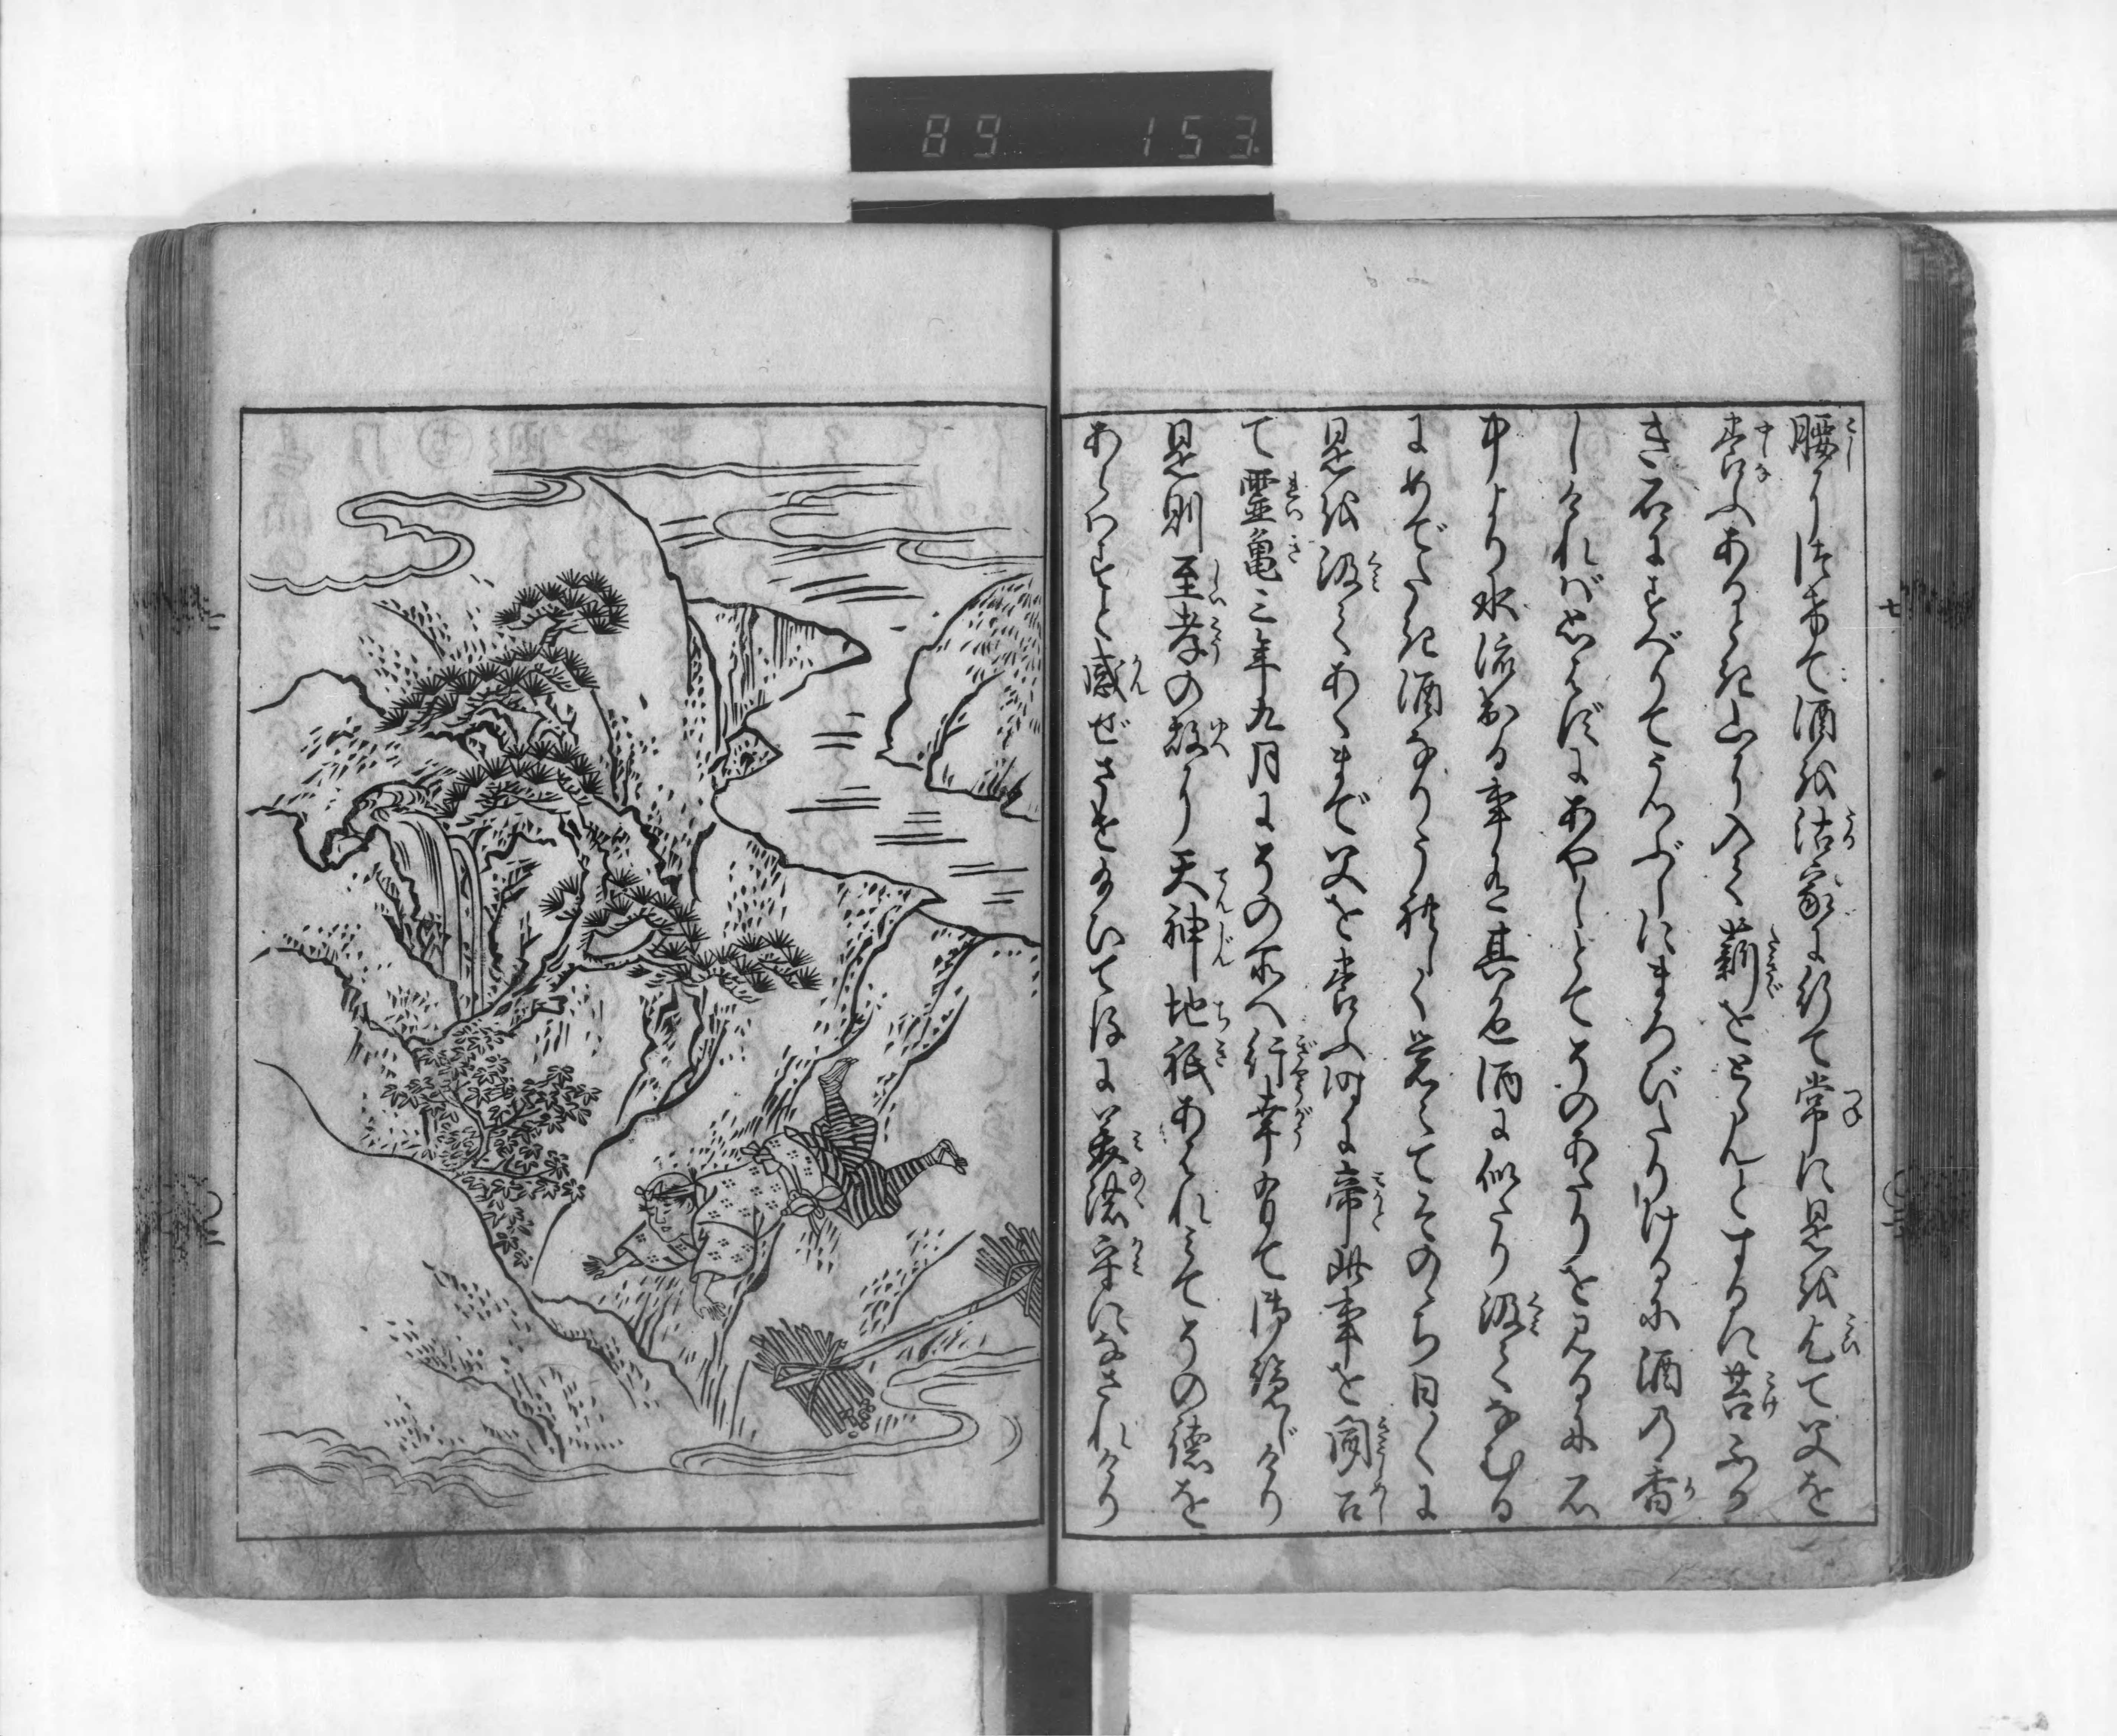 89 153
腰に付て酒を沽家に行て常に是を乞て父を
養ふある時山に入て薪をとらんとするに苔ふか
き石にすべりてうつぶしにまろびたりけるに酒の香
しければ思はずにあやしとてそのあたりを見るに石
中より水流出る事有其色酒に似たり汲てなむる
にめでたき酒なりうれしく覚てそのゝち日々に
是を汲てあくまで父を養ふ時に帝此事を聞召
て霊亀三年九月にその所へ行幸有て御覧じけり
是則至孝の故に天神地祇あはれみてその徳を
あらはすと感ぜさせ給ひて後に美濃守になされけり
七